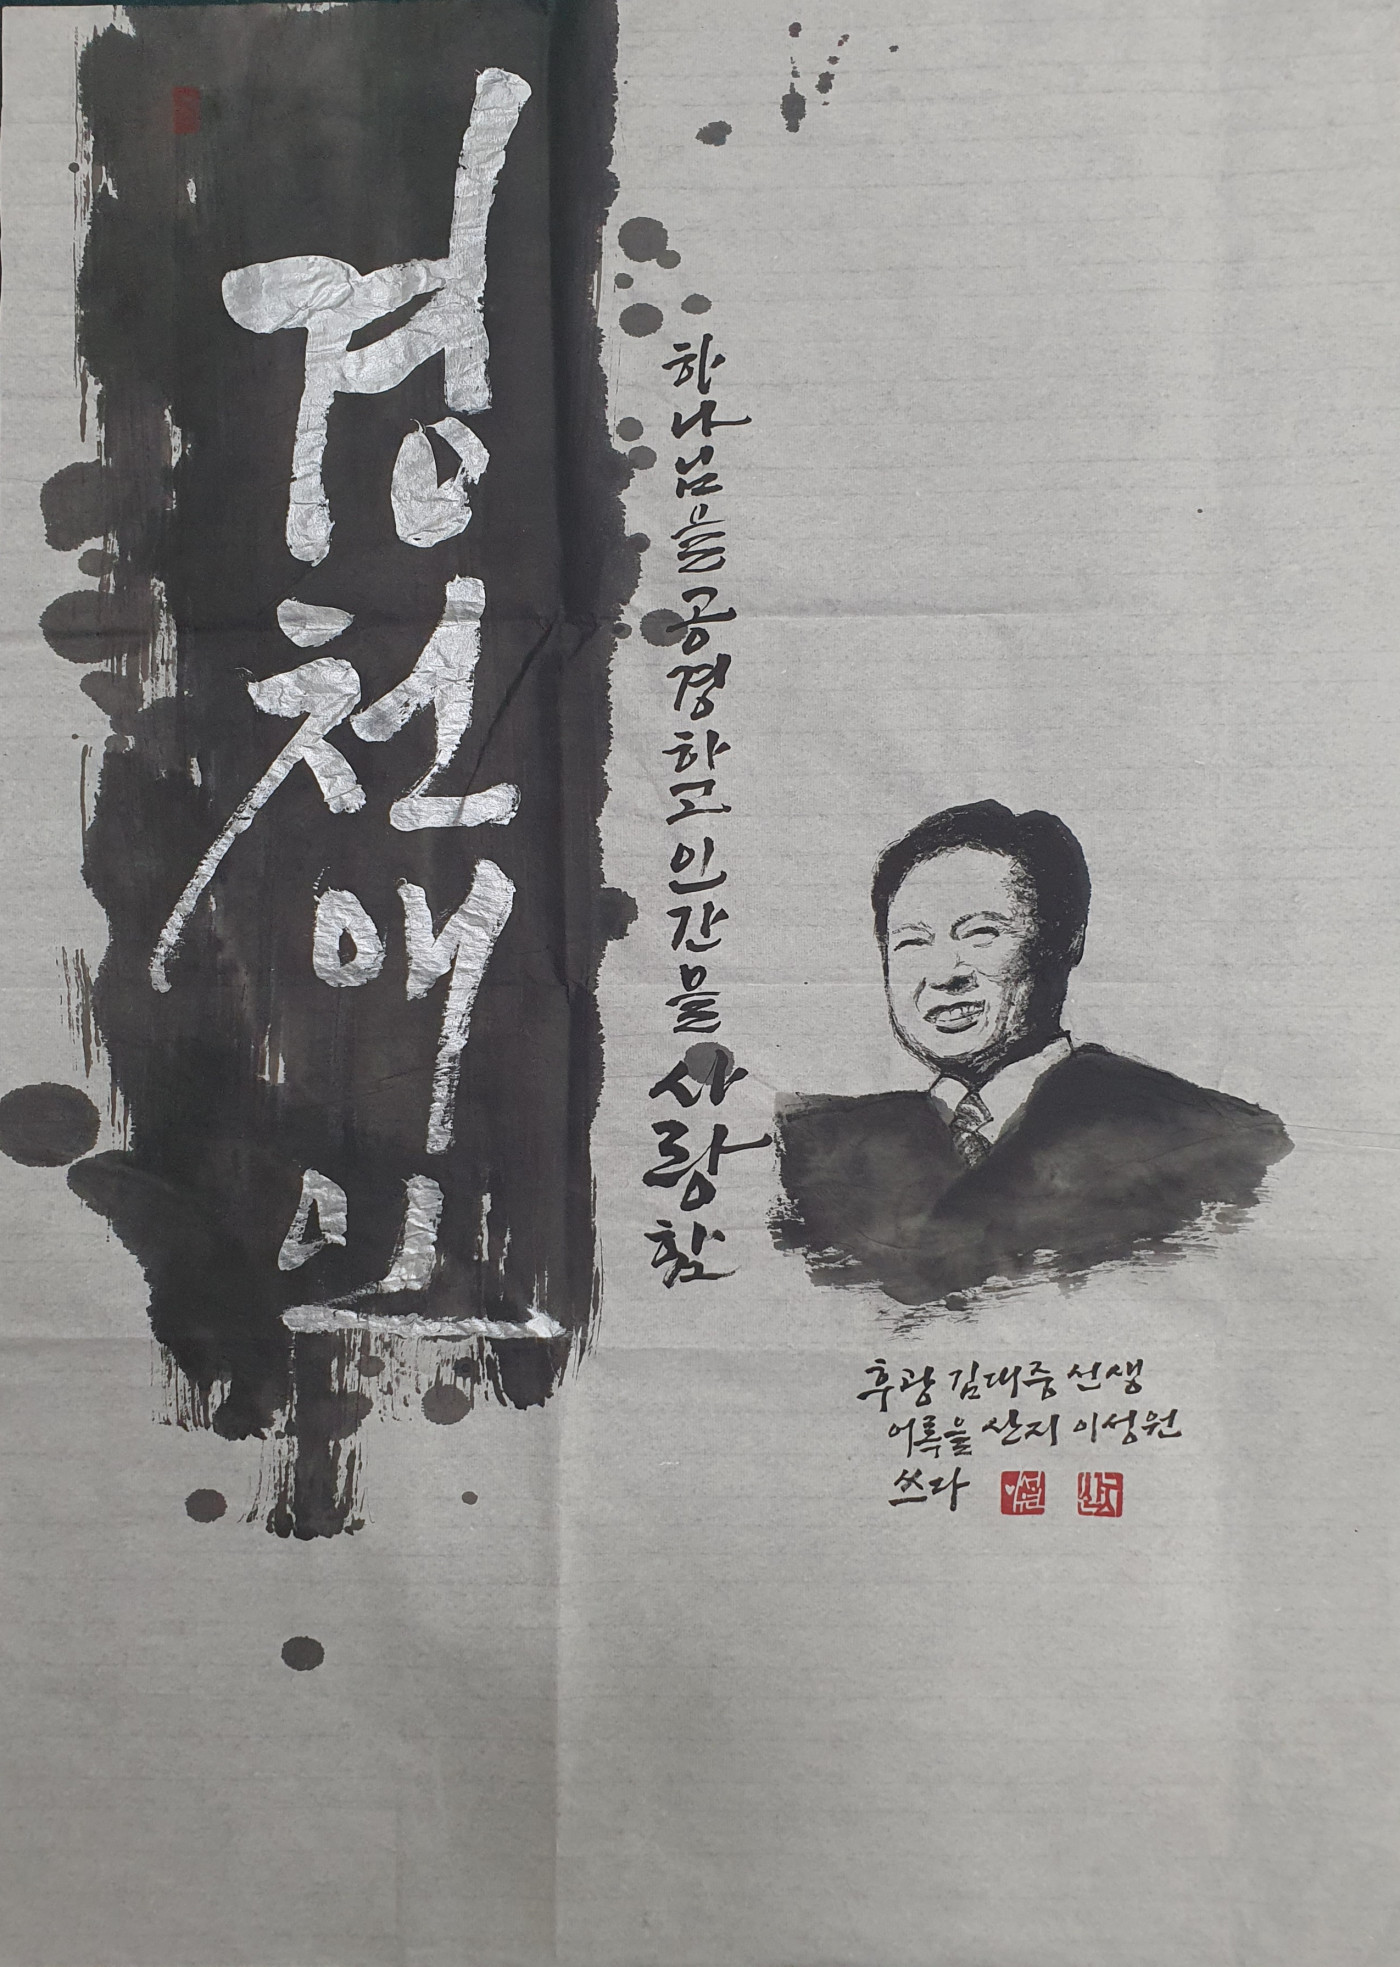 경천애인
하나님을 공경하고 인간을 사랑함
후광 김대중 선생
어록을 산지 이성원
쓰다